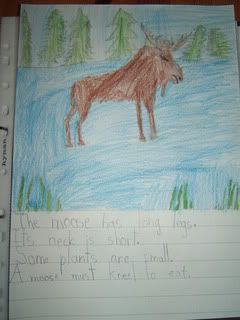 The moose has long legs.
Its neck is short.
Some plants are small.
A moose must kneel to eat.